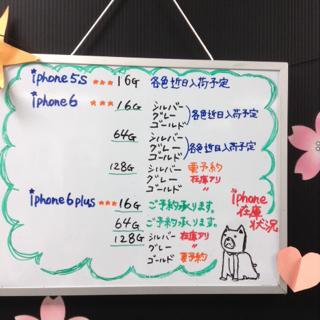 iphone5s ★★★ 16G 各色近日入荷予定
iphone6 ★★★ 16G シルバー
グレー 各色近日入荷予定
ゴールド
64G シルバー
グレー 各色近日入荷予定
ゴールド
128G シルバー 要予約
グレー 在庫アリ
ゴールド 〃
iphone6plus ★★★ 16G ご予約承ります。
64G ご予約承ります。
128G シルバー 在庫アリ
グレー 〃
ゴールド 要予約
iphone
在庫
状況